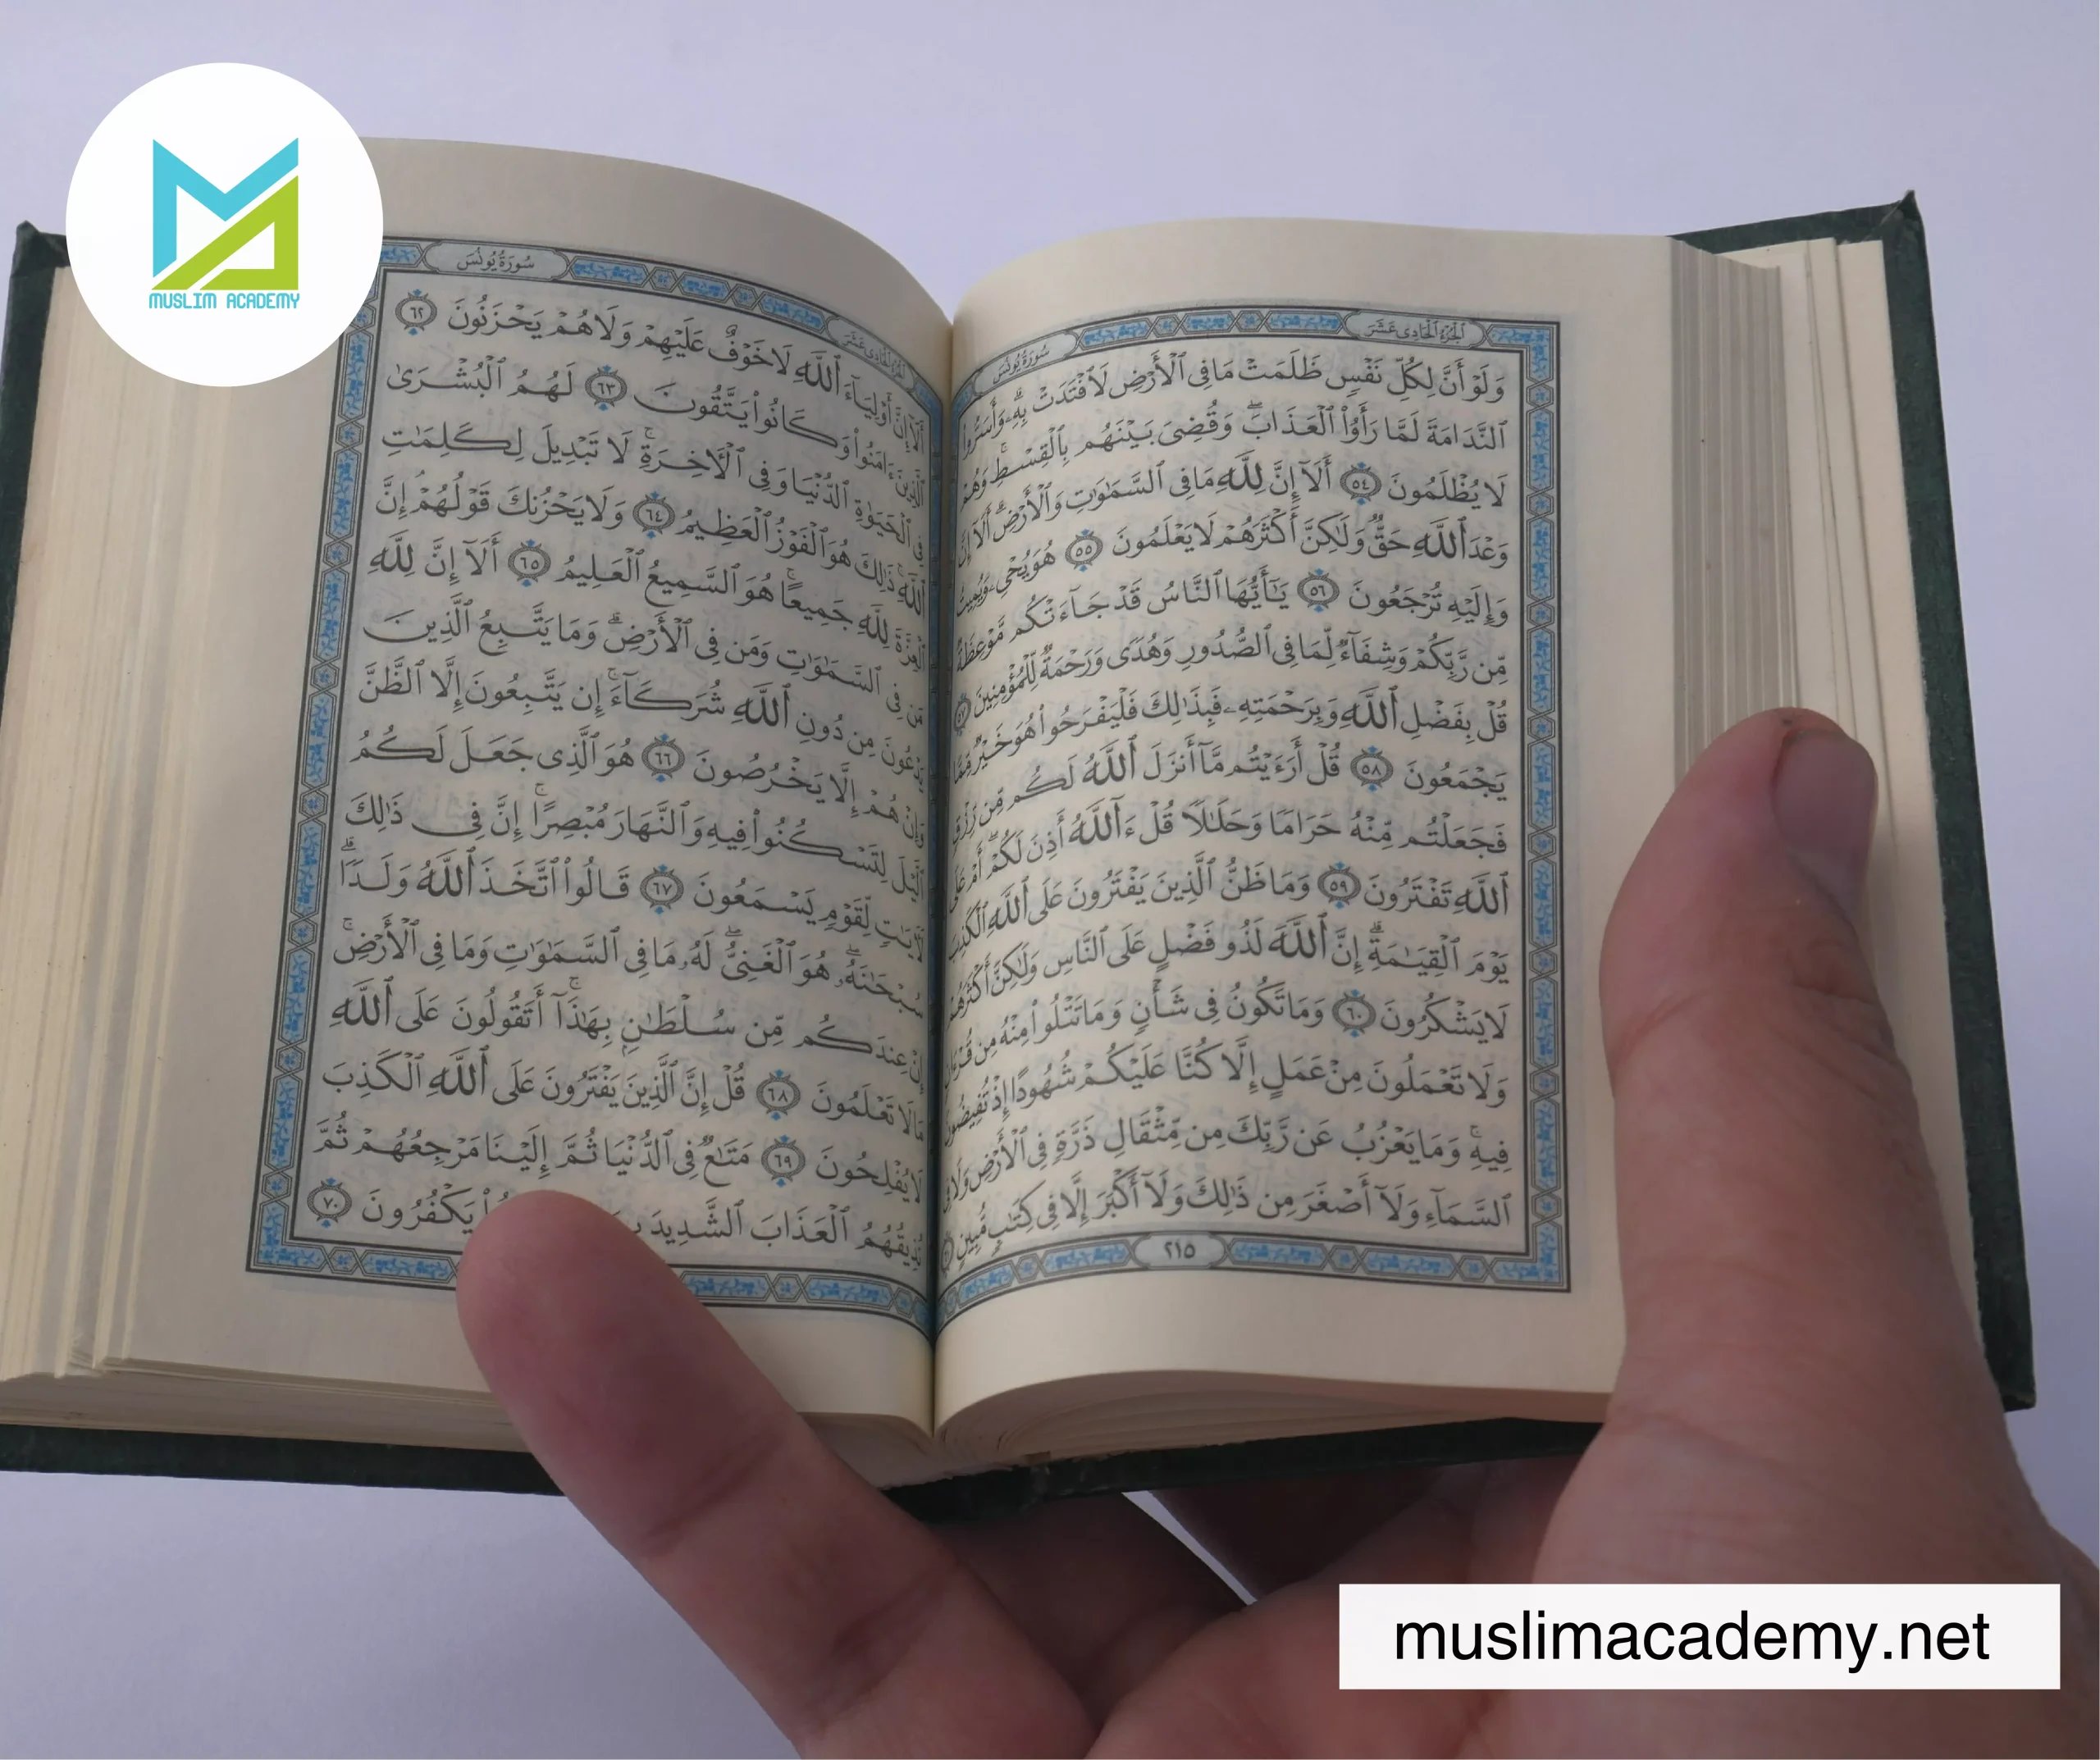 MUSLIM ACADEMY
ٱلْجُزْءُ ٱلْحَادِى عَشَرَ
سُورَةُ يُونُسَ
وَلَوْ أَنَّ لِكُلِّ نَفْسٍ ظَلَمَتْ مَا فِى ٱلْأَرْضِ لَٱفْتَدَتْ بِهِۦۗ وَأَسَرُّوا۟
ٱلنَّدَامَةَ لَمَّا رَأَوُا۟ ٱلْعَذَابَۖ وَقُضِىَ بَيْنَهُم بِٱلْقِسْطِۚ وَهُمْ
لَا يُظْلَمُونَ ٥٤ أَلَآ إِنَّ لِلَّهِ مَا فِى ٱلسَّمَٰوَٰتِ وَٱلْأَرْضِۗ أَلَآ إِنَّ
وَعْدَ ٱللَّهِ حَقٌّ وَلَٰكِنَّ أَكْثَرَهُمْ لَا يَعْلَمُونَ ٥٥ هُوَ يُحْىِۦ وَيُمِيتُ
وَإِلَيْهِ تُرْجَعُونَ ٥٦ يَٰٓأَيُّهَا ٱلنَّاسُ قَدْ جَآءَتْكُم مَّوْعِظَةٌ
مِّن رَّبِّكُمْ وَشِفَآءٌ لِّمَا فِى ٱلصُّدُورِ وَهُدًى وَرَحْمَةٌ لِّلْمُؤْمِنِينَ ٥٧
قُلْ بِفَضْلِ ٱللَّهِ وَبِرَحْمَتِهِۦ فَبِذَٰلِكَ فَلْيَفْرَحُوا۟ هُوَ خَيْرٌ مِّمَّا
يَجْمَعُونَ ٥٨ قُلْ أَرَءَيْتُم مَّآ أَنزَلَ ٱللَّهُ لَكُم مِّن رِّزْقٍ
فَجَعَلْتُم مِّنْهُ حَرَامًا وَحَلَٰلًا قُلْ ءَآللَّهُ أَذِنَ لَكُمْۖ أَمْ عَلَى
ٱللَّهِ تَفْتَرُونَ ٥٩ وَمَا ظَنُّ ٱلَّذِينَ يَفْتَرُونَ عَلَى ٱللَّهِ ٱلْكَذِبَ
يَوْمَ ٱلْقِيَٰمَةِۗ إِنَّ ٱللَّهَ لَذُو فَضْلٍ عَلَى ٱلنَّاسِ وَلَٰكِنَّ أَكْثَرَهُمْ
لَا يَشْكُرُونَ ٦٠ وَمَا تَكُونُ فِى شَأْنٍ وَمَا تَتْلُوا۟ مِنْهُ مِن قُرْءَانٍ
وَلَا تَعْمَلُونَ مِنْ عَمَلٍ إِلَّا كُنَّا عَلَيْكُمْ شُهُودًا إِذْ تُفِيضُونَ
فِيهِۚ وَمَا يَعْزُبُ عَن رَّبِّكَ مِن مِّثْقَالِ ذَرَّةٍ فِى ٱلْأَرْضِ وَلَا فِى
ٱلسَّمَآءِ وَلَآ أَصْغَرَ مِن ذَٰلِكَ وَلَآ أَكْبَرَ إِلَّا فِى كِتَٰبٍ مُّبِينٍ
٢١٥
ٱلْجُزْءُ ٱلْحَادِى عَشَرَ
سُورَةُ يُونُسَ
أَلَآ إِنَّ أَوْلِيَآءَ ٱللَّهِ لَا خَوْفٌ عَلَيْهِمْ وَلَا هُمْ يَحْزَنُونَ ٦٢
ٱلَّذِينَ ءَامَنُوا۟ وَكَانُوا۟ يَتَّقُونَ ٦٣ لَهُمُ ٱلْبُشْرَىٰ
ٱلْحَيَوٰةِ ٱلدُّنْيَا وَفِى ٱلْءَاخِرَةِۚ لَا تَبْدِيلَ لِكَلِمَٰتِ
ٱللَّهِۚ ذَٰلِكَ هُوَ ٱلْفَوْزُ ٱلْعَظِيمُ ٦٤ وَلَا يَحْزُنكَ قَوْلُهُمْۘ إِنَّ
ٱلْعِزَّةَ لِلَّهِ جَمِيعًاۚ هُوَ ٱلسَّمِيعُ ٱلْعَلِيمُ ٦٥ أَلَآ إِنَّ لِلَّهِ
فِى ٱلسَّمَٰوَٰتِ وَمَن فِى ٱلْأَرْضِۗ وَمَا يَتَّبِعُ ٱلَّذِينَ
مِن دُونِ ٱللَّهِ شُرَكَآءَۚ إِن يَتَّبِعُونَ إِلَّا ٱلظَّنَّ
هُمْ إِلَّا يَخْرُصُونَ ٦٦ هُوَ ٱلَّذِى جَعَلَ لَكُمُ
لِتَسْكُنُوا۟ فِيهِ وَٱلنَّهَارَ مُبْصِرًاۚ إِنَّ فِى ذَٰلِكَ
لِّقَوْمٍ يَسْمَعُونَ ٦٧ قَالُوا۟ ٱتَّخَذَ ٱللَّهُ وَلَدًاۗ
سُبْحَٰنَهُۥۖ هُوَ ٱلْغَنِىُّۖ لَهُۥ مَا فِى ٱلسَّمَٰوَٰتِ وَمَا فِى ٱلْأَرْضِۚ
إِنْ عِندَكُم مِّن سُلْطَٰنٍۭ بِهَٰذَآۚ أَتَقُولُونَ عَلَى ٱللَّهِ
لَا تَعْلَمُونَ ٦٨ قُلْ إِنَّ ٱلَّذِينَ يَفْتَرُونَ عَلَى ٱللَّهِ ٱلْكَذِبَ
لَا يُفْلِحُونَ ٦٩ مَتَٰعٌ فِى ٱلدُّنْيَا ثُمَّ إِلَيْنَا مَرْجِعُهُمْ ثُمَّ
نُذِيقُهُمُ ٱلْعَذَابَ ٱلشَّدِيدَ يَكْفُرُونَ ٧٠
muslimacademy.net